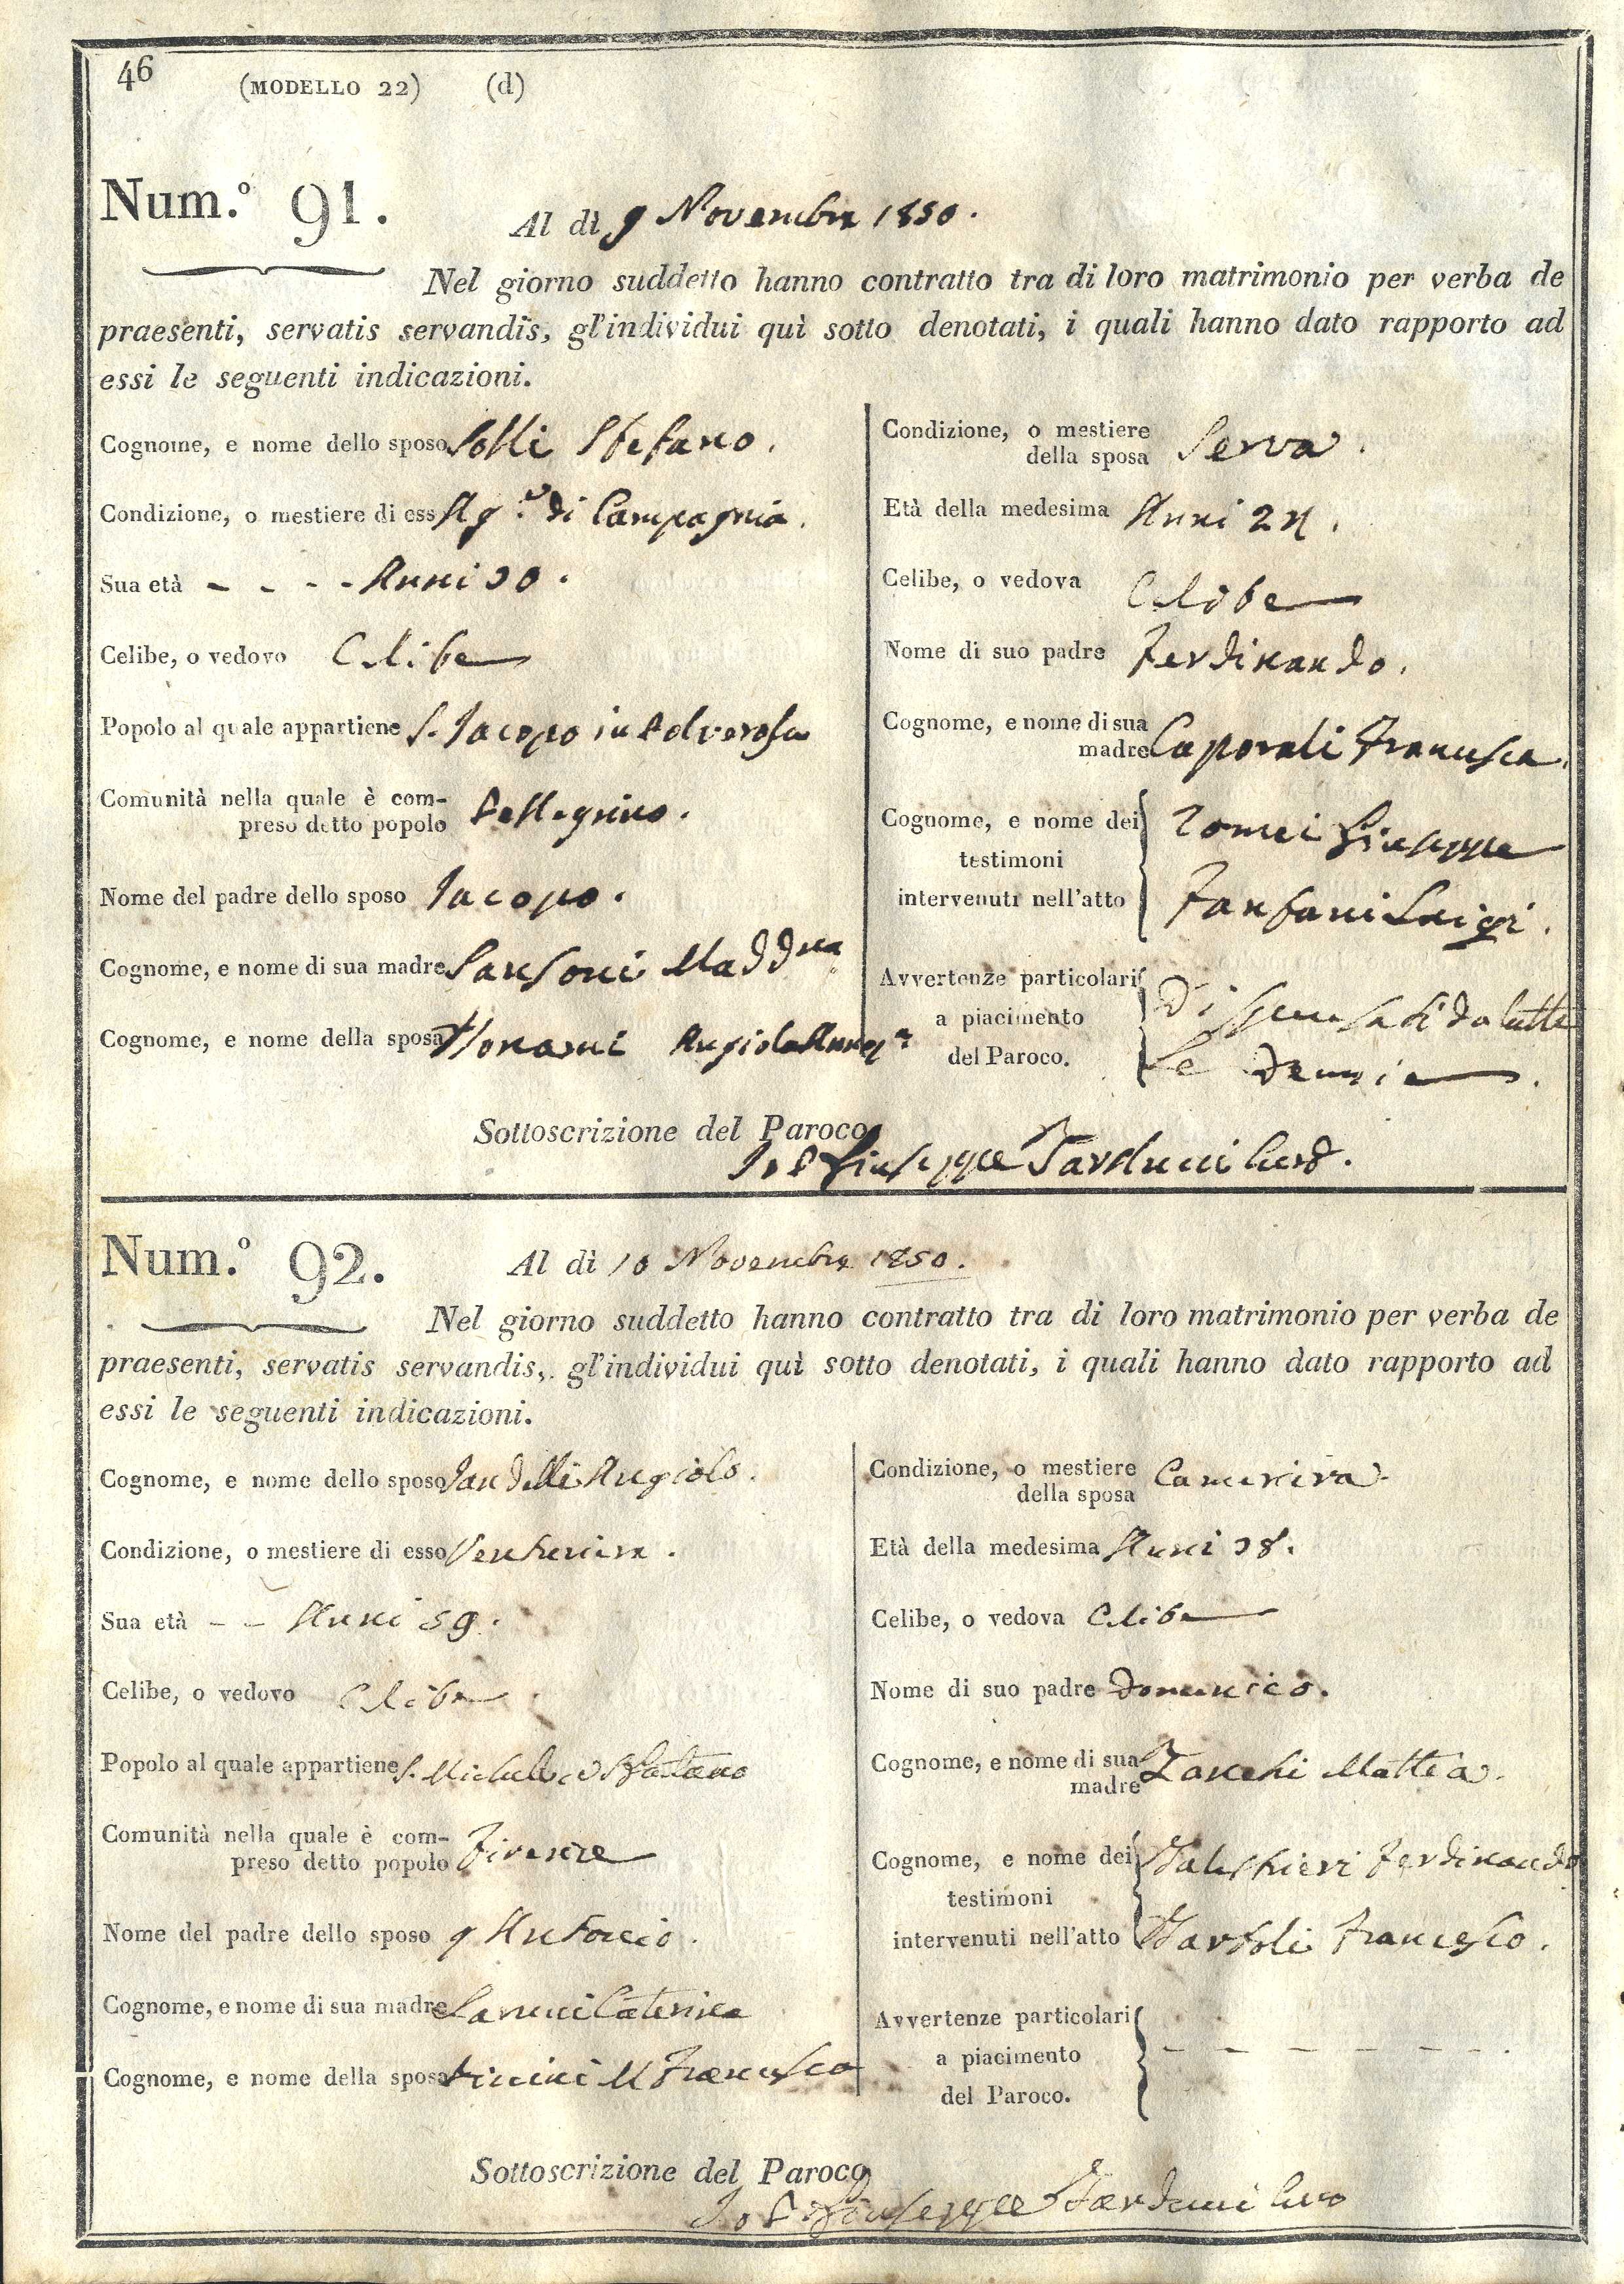 46
(MODELLO 22) (d)
Num.º 91.
Al dì 9 Novembre 1850.
Nel giorno suddetto hanno contratto tra di loro matrimonio per verba de
praesenti, servatis servandis, gl'individui quì sotto denotati, i quali hanno dato rapporto ad
essi le seguenti indicazioni.
Cognome, e nome dello sposo Stefano.
Condizione, o mestiere di ess Ag.e di Campagnia.
Sua età - - - - Anni 30.
Celibe, o vedovo Celibe
Popolo al quale appartiene S. Iacopo in Polverosa
Comunità nella quale è com-
preso detto popolo Pellegrino.
Nome del padre dello sposo Iacopo.
Cognome, e nome di sua madre Sansoni Madd.na
Cognome, e nome della sposa
Condizione, o mestiere
della sposa Serva.
Età della medesima Anni 24.
Celibe, o vedova Celibe
Nome di suo padre Ferdinando.
Cognome, e nome di sua
madre Caporali Francesca.
Cognome, e nome dei Tomei Giuseppe
testimoni
intervenuti nell'atto Fanfani Luigi.
Avvertenze particolari Dispensati da tutte
a piacimento le Denunzie.
del Paroco.
Sottoscrizione del Paroco
Io P. Giuseppe Tarducci Curo.
Num.º 92.
Al dì 10 Novembre 1850.
Nel giorno suddetto hanno contratto tra di loro matrimonio per verba de
praesenti, servatis servandis, gl'individui quì sotto denotati, i quali hanno dato rapporto ad
essi le seguenti indicazioni.
Cognome, e nome dello sposo Angiolo.
Condizione, o mestiere di esso
Sua età - - Anni 59.
Celibe, o vedovo Celibe
Popolo al quale appartiene S. Michele
Comunità nella quale è com-
preso detto popolo Firenze
Nome del padre dello sposo q Antonio.
Cognome, e nome di sua madre Caterina
Cognome, e nome della sposa M Francesca
Condizione, o mestiere
della sposa Cameriera.
Età della medesima Anni 38.
Celibe, o vedova Celibe
Nome di suo padre Domenico.
Cognome, e nome di sua
madre Zanchi Mattea.
Cognome, e nome dei Ferdinando
testimoni
intervenuti nell'atto Bartoli Francesco.
Avvertenze particolari
a piacimento - - - - - - -
del Paroco.
Sottoscrizione del Paroco
Io P. Giuseppe Tarducci Curo